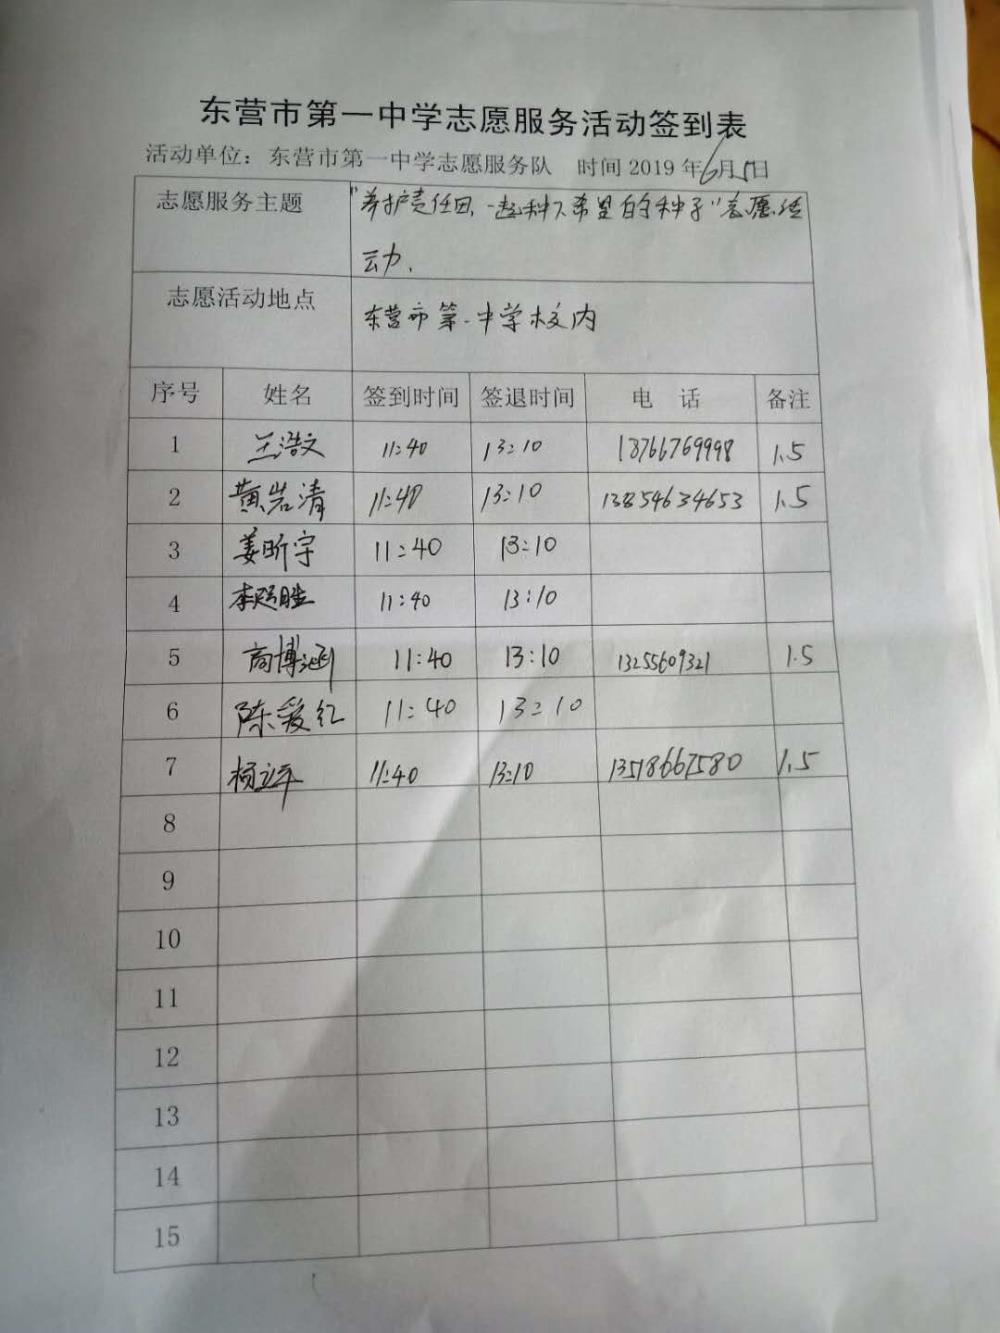 东营市第一中学志愿服务活动签到表
活动单位：东营市第一中学志愿服务队 时间 2019 年6月5日
志愿服务主题 "养护责任田，一起种下希望的种子"志愿活
动．
志愿活动地点 东营市第一中学校内
序号 姓名 签到时间 签退时间 电 话 备注
1 王浩文 11:40 13:10 18766769998 1.5
2 黄岩清 11:40 13:10 13854634653 1.5
3 姜昕宇 11:40 13:10
4 李 11:40 13:10
5 商博涵 11:40 13:10 13255609321 1.5
6 陈爱红 11:40 13:10
7 杨立军 11:40 13:10 13518667580 1.5
8
9
10
11
12
13
14
15